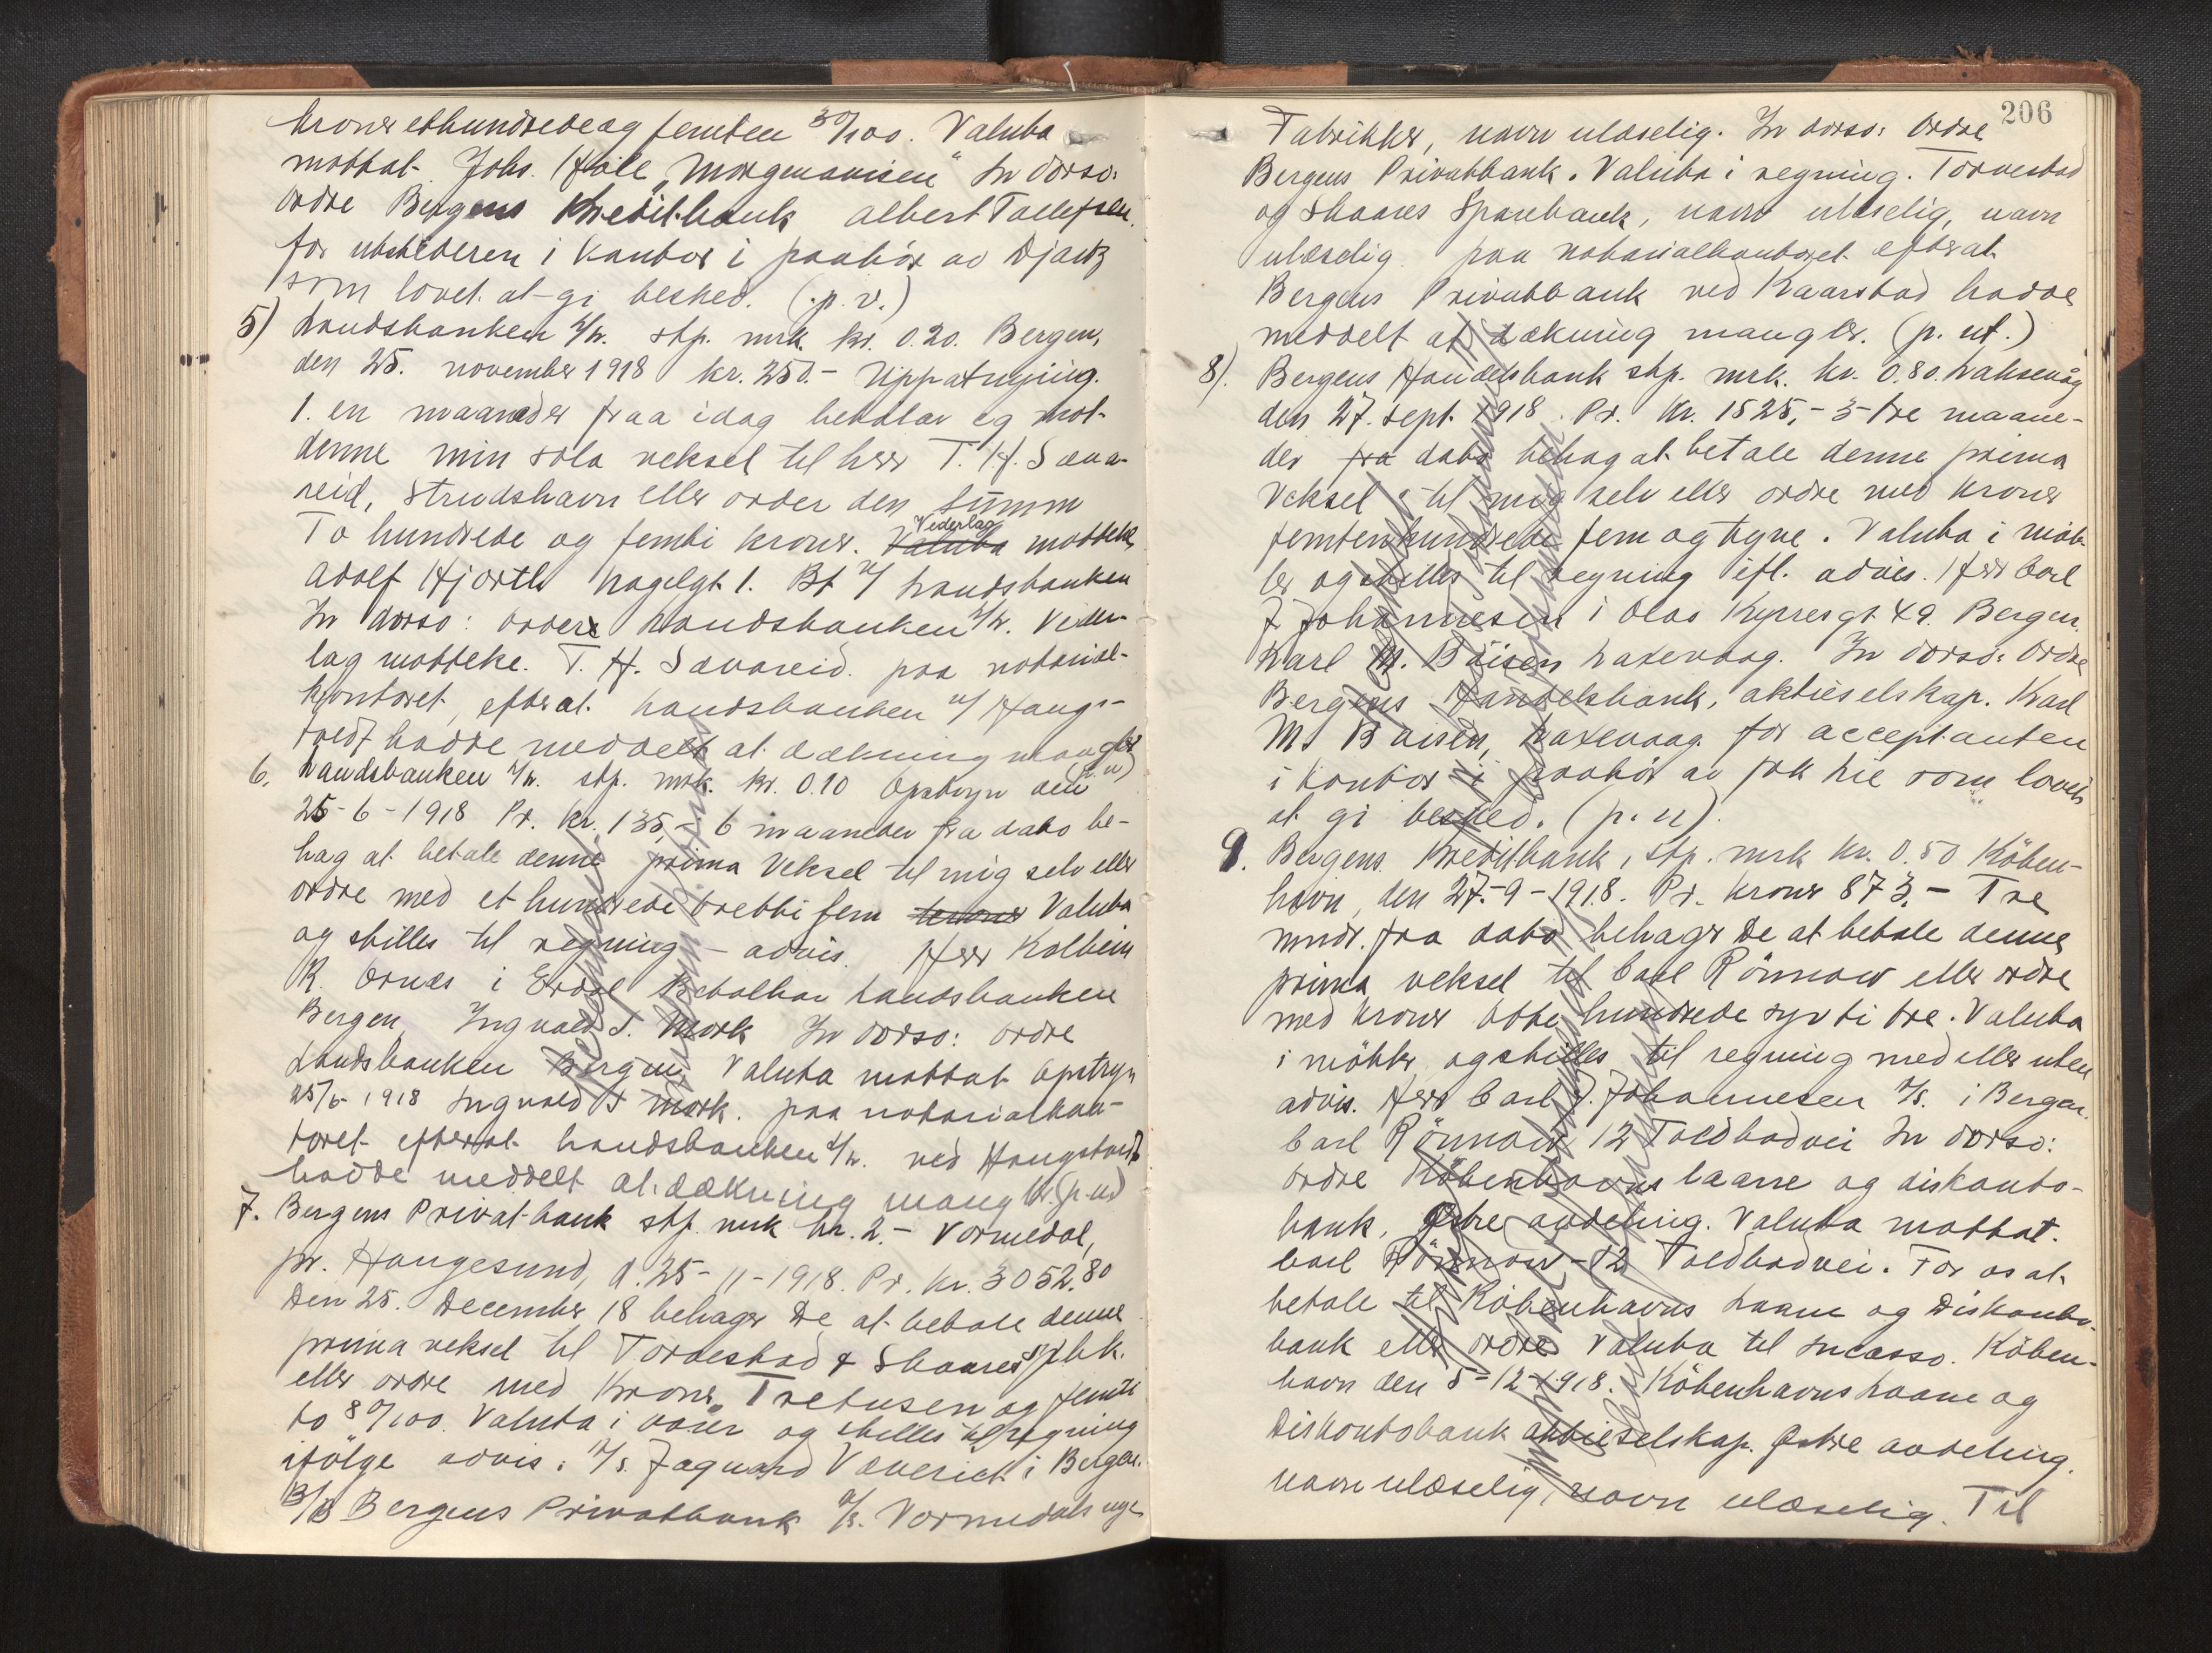 kroner ethundredeog femten 30/100. Valuta
mottat. Johs. "Morgenavisen" In dorso:
ordre Bergens Kreditbank Albert Tollefsen.
for utstederen i kontor i paahør av
som lovet at gi besked. (p. v.)
5) Landsbanken A/S. stp. mrk. kr. 0.20. Bergen,
den 25. november 1918 kr. 250.-
1. en maaneder fraa idag betalar eg mot
denne min sola veksel til herr T. H. Sæva-
reid, Strudshavn eller order den summ
To hundrede og femti kroner. Vederlag motteke
Adolf Hjorth 1. Bt A/S Landsbanken
In dorso: ordere Landsbanken A/S. Veder-
lag motteke. T. H. Sævareid. paa notarial-
kontoret, efterat Landsbanken v/ Haugs-
tvedt hadde meddelt at dækning mangler (p. u)
6. Landsbanken A/S. stp. mrk. kr. 0.10 Opstryn den
25-6-1918 Pr. Kr. 135,- 6 maaneder fra dato be-
hag at betale denne prima Veksel til mig selv eller
ordre med et hundrede tretti fem kroner Valuta
og stilles til regning - advis. Herr Kolbein
R. Ornes i Erdal Betalbar Landsbanken
Bergen, Ingvald S. Mork In dorso: ordre
Landsbanken Bergen Valuta mottat Opstryn
25/6 1918 Ingvald S Mork. paa notarialkon-
toret efterat Landsbanken A/S. ved Haugstvedt
hadde meddelt at dækning mangler. (p.u)
7. Bergens Privatbank stp. mrk kr. 2.- Vormedal,
pr. Haugesund, d. 25-11-1918. Pr. Kr. 3052.80
Den 25. December 18 behager De at betale denne
prima veksel til Torvestad & Skaares Spbk.
eller ordre med Kroner Tretusen og femti
to 80/100. Valuta i varer og stilles til regning
ifølge advis. A/S. Jaguard Væveriet i Bergen.
B/B Bergens Privatbank A/S. Vormedals
206
Fabrikker, navn ulæselig. In dorso: Ordre
Bergens Privatbank. Valuta i regning. Torvestad
og Skaares Sparebank, navn ulæselig, navn
ulæselig. paa notarialkontoret efterat
Bergens Privatbank ved Kaarstad hadde
meddelt at dækning mangler. (p. ut.)
8). Bergens Handelsbank stp. mrk. kr. 0.80. Laksevåg
den 27. sept. 1918. Pr. Kr. 1525,- 3-tre maane-
der fra dato behag at betale denne prima
Veksel til mig selv eller ordre med kroner
femtenhundrede fem og tyve. Valuta i møb-
ler og stilles til regning ifl. advis. Herr Carl
J Johannesen i Olav Kyrresgt 49. Bergen.
Karl M. Boisen Laxevaag. In dorso: Ordre
Bergens Handelsbank, aktieselskap. Karl
M. Boisen, Laxevaag. for acceptanten
i kontor i paahør av som lovet
at gi besked. (p. u).
9. Bergens Kreditbank, stp. mrk kr. 0.50 Köben-
havn, den 27-9-1918. Pr. kroner 873.- Tre
mndr. fra dato behager De at betale denne
prima veksel til Carl Rönnow eller ordre
med kroner otte hundrede syvti tre. Valuta
i möbler og stilles til regning med eller uten
advis. Herr Carl J. Johannesen A/S. i Bergen.
Carl Rönnow 12 Toldbodvei In dorso:
ordre Köbenhavns laane og diskonto-
bank, Østre avdeling. Valuta mottat.
Carl Rönnow - 12 Toldbodvei. For os at
betale til Köbenhavns Laane og Diskonto-
bank eller ordre Valuta til Incasso. Köben-
havn den 5-12-1918. Köbenhavns Laane og
Diskontobank aktieselskap. Østre avdeling.
navn ulæselig, navn ulæselig. Til